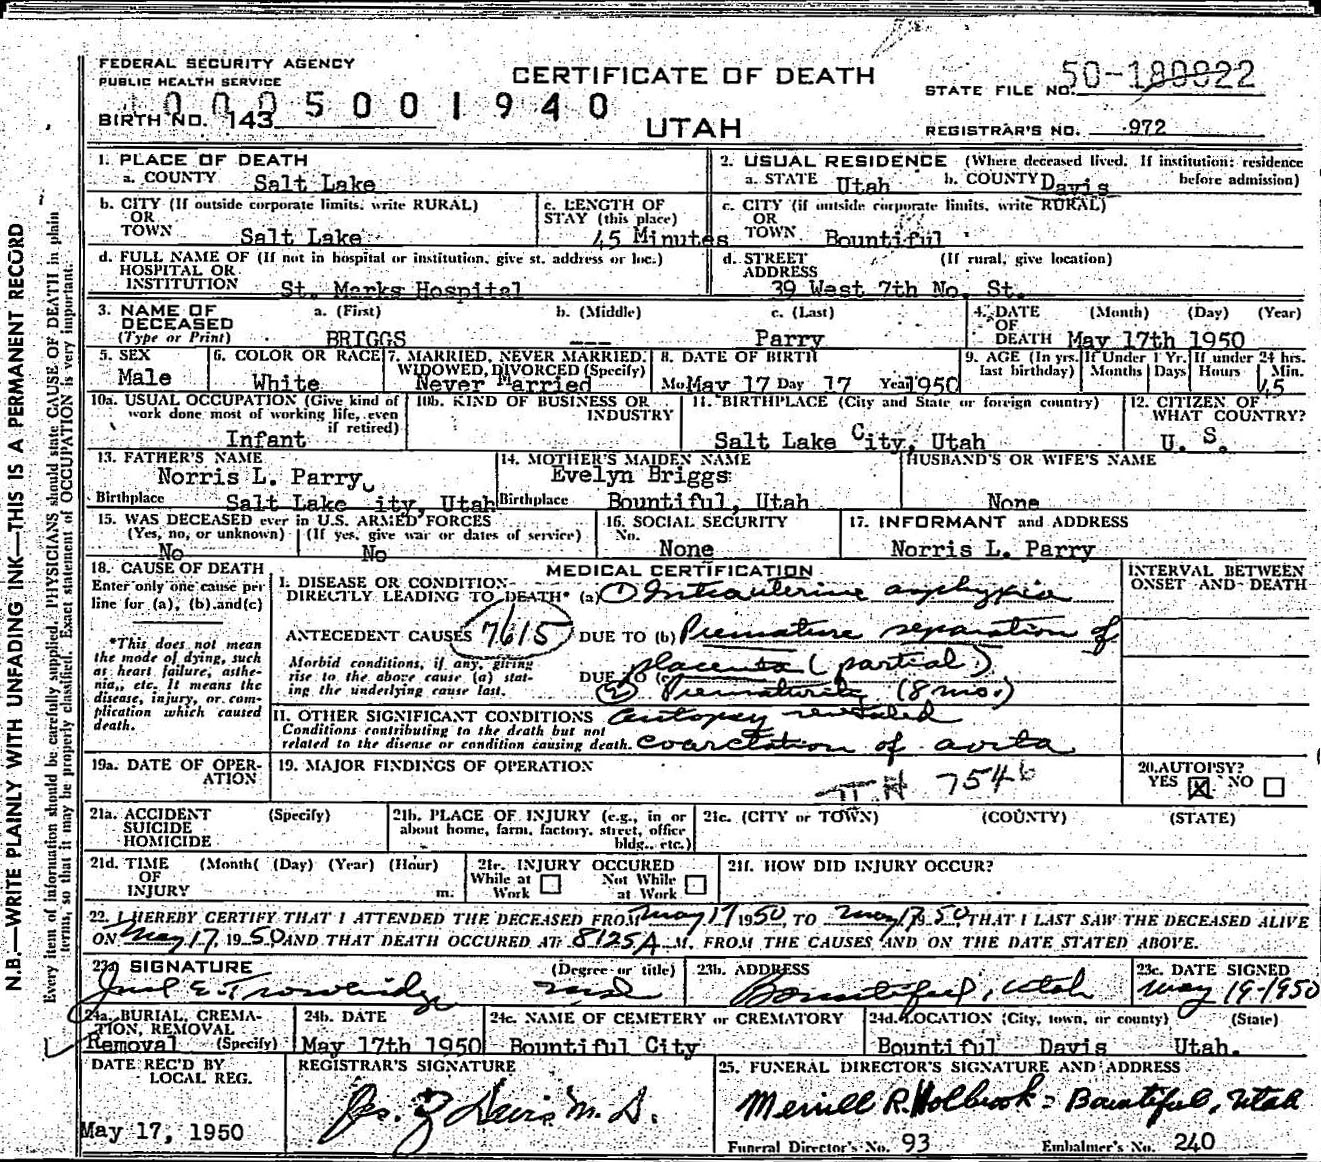 FEDERAL SECURITY AGENCY
PUBLIC HEALTH SERVICE
CERTIFICATE OF DEATH
STATE FILE NO. 50-180822
0005001940
BIRTH NO. 143
UTAH
REGISTRAR'S NO. 972
N.B.—WRITE PLAINLY WITH UNFADING INK—THIS IS A PERMANENT RECORD
Every item of information should be carefully supplied. PHYSICIANS should state CAUSE OF DEATH in plain
terms, so that it may be properly classified. Exact statement of OCCUPATION is very important.
1. PLACE OF DEATH
a. COUNTY Salt Lake
2. USUAL RESIDENCE (Where deceased lived. If institution: residence
a. STATE Utah b. COUNTY Davis before admission)
b. CITY (If outside corporate limits, write RURAL)
OR
TOWN Salt Lake
c. LENGTH OF
STAY (this place)
45 Minutes
c. CITY (if outside corporate limits, write RURAL)
OR
TOWN Bountiful
d. FULL NAME OF (If not in hospital or institution, give st. address or loc.)
HOSPITAL OR
INSTITUTION St. Marks Hospital
d. STREET (If rural, give location)
ADDRESS
39 West 7th No. St.
3. NAME OF a. (First) b. (Middle) c. (Last)
DECEASED
(Type or Print) BRIGGS --- Parry
4. DATE (Month) (Day) (Year)
OF
DEATH May 17th 1950
5. SEX
Male
6. COLOR OR RACE
White
7. MARRIED, NEVER MARRIED,
WIDOWED, DIVORCED (Specify)
Never Married
8. DATE OF BIRTH
Mo May 17 Day 17 Year 1950
9. AGE (In yrs. last birthday)
If Under 1 Yr. Months Days
If under 24 hrs. Hours Min.
45
10a. USUAL OCCUPATION (Give kind of
work done most of working life, even
if retired)
Infant
10b. KIND OF BUSINESS OR
INDUSTRY
11. BIRTHPLACE (City and State or foreign country)
Salt Lake City, Utah
12. CITIZEN OF
WHAT COUNTRY?
U. S.
13. FATHER'S NAME
Norris L. Parry
Birthplace Salt Lake ity, Utah
14. MOTHER'S MAIDEN NAME
Evelyn Briggs
Birthplace Bountiful, Utah
HUSBAND'S OR WIFE'S NAME
None
15. WAS DECEASED ever in U.S. ARMED FORCES
(Yes, no, or unknown) (If yes, give war or dates of service)
No No
16. SOCIAL SECURITY
No.
None
17. INFORMANT and ADDRESS
Norris L. Parry
18. CAUSE OF DEATH
Enter only one cause per
line for (a), (b) and (c)
*This does not mean
the mode of dying, such
as heart failure, asthe-
nia, etc. It means the
disease, injury, or com-
plication which caused
death.
MEDICAL CERTIFICATION
INTERVAL BETWEEN
ONSET AND DEATH
I. DISEASE OR CONDITION
DIRECTLY LEADING TO DEATH* (a) ① Intrauterine asphyxia
ANTECEDENT CAUSES 7615 DUE TO (b) Premature separation of
placenta (partial)
Morbid conditions, if any, giving
rise to the above cause (a) stat-
ing the underlying cause last.
DUE TO (c)
② Prematurity (8 mo.)
II. OTHER SIGNIFICANT CONDITIONS autopsy revealed
Conditions contributing to the death but not
related to the disease or condition causing death. coarctation of aorta
19a. DATE OF OPER-
ATION
19. MAJOR FINDINGS OF OPERATION
7546
20. AUTOPSY?
YES ☒ NO ☐
21a. ACCIDENT (Specify)
SUICIDE
HOMICIDE
21b. PLACE OF INJURY (e.g., in or
about home, farm, factory, street, office
bldg., etc.)
21c. (CITY or TOWN) (COUNTY) (STATE)
21d. TIME (Month( (Day) (Year) (Hour)
OF
INJURY m.
21e. INJURY OCCURED
While at ☐ Not While ☐
Work at Work
21f. HOW DID INJURY OCCUR?
22. I HEREBY CERTIFY THAT I ATTENDED THE DECEASED FROM May 17 1950, TO May 17, 1950, THAT I LAST SAW THE DECEASED ALIVE
ON May 17, 1950 AND THAT DEATH OCCURED AT 8:25 A M. FROM THE CAUSES AND ON THE DATE STATED ABOVE.
23a SIGNATURE (Degree or title)
E. Trowbridge MD
23b. ADDRESS
Bountiful, Utah
23c. DATE SIGNED
May 19-1950
24a. BURIAL, CREMA-
TION, REMOVAL
Removal (Specify)
24b. DATE
May 17th 1950
24c. NAME OF CEMETERY or CREMATORY
Bountiful City
24d. LOCATION (City, town, or county) (State)
Bountiful Davis Utah.
DATE REC'D BY
LOCAL REG.
May 17, 1950
REGISTRAR'S SIGNATURE
M. D.
25. FUNERAL DIRECTOR'S SIGNATURE AND ADDRESS
Merrill R. Holbrook - Bountiful, Utah
Funeral Director's No. 93 Embalmer's No. 240